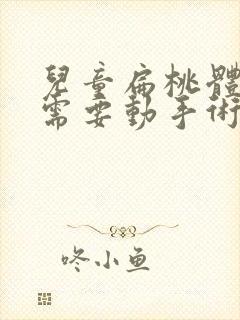 兒童扁桃體
需要動手術
咚小鱼